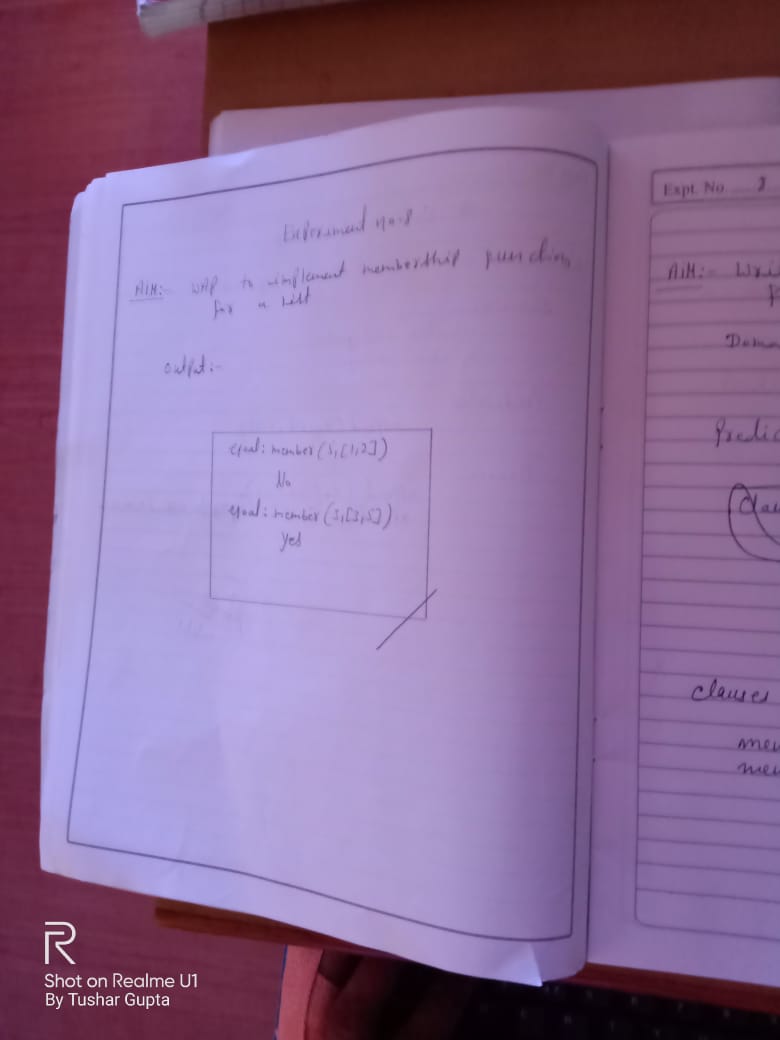 Experiment no-8
AIM:- WAP to implement membership function
for a list
output:-
goal: member(5,[1,2])
No
goal: member(3,[3,5])
Yes
Expt. No.
AIM:- Wri
Doma
Predic
Clau
clauses
mem
mem
Shot on Realme U1
By Tushar Gupta